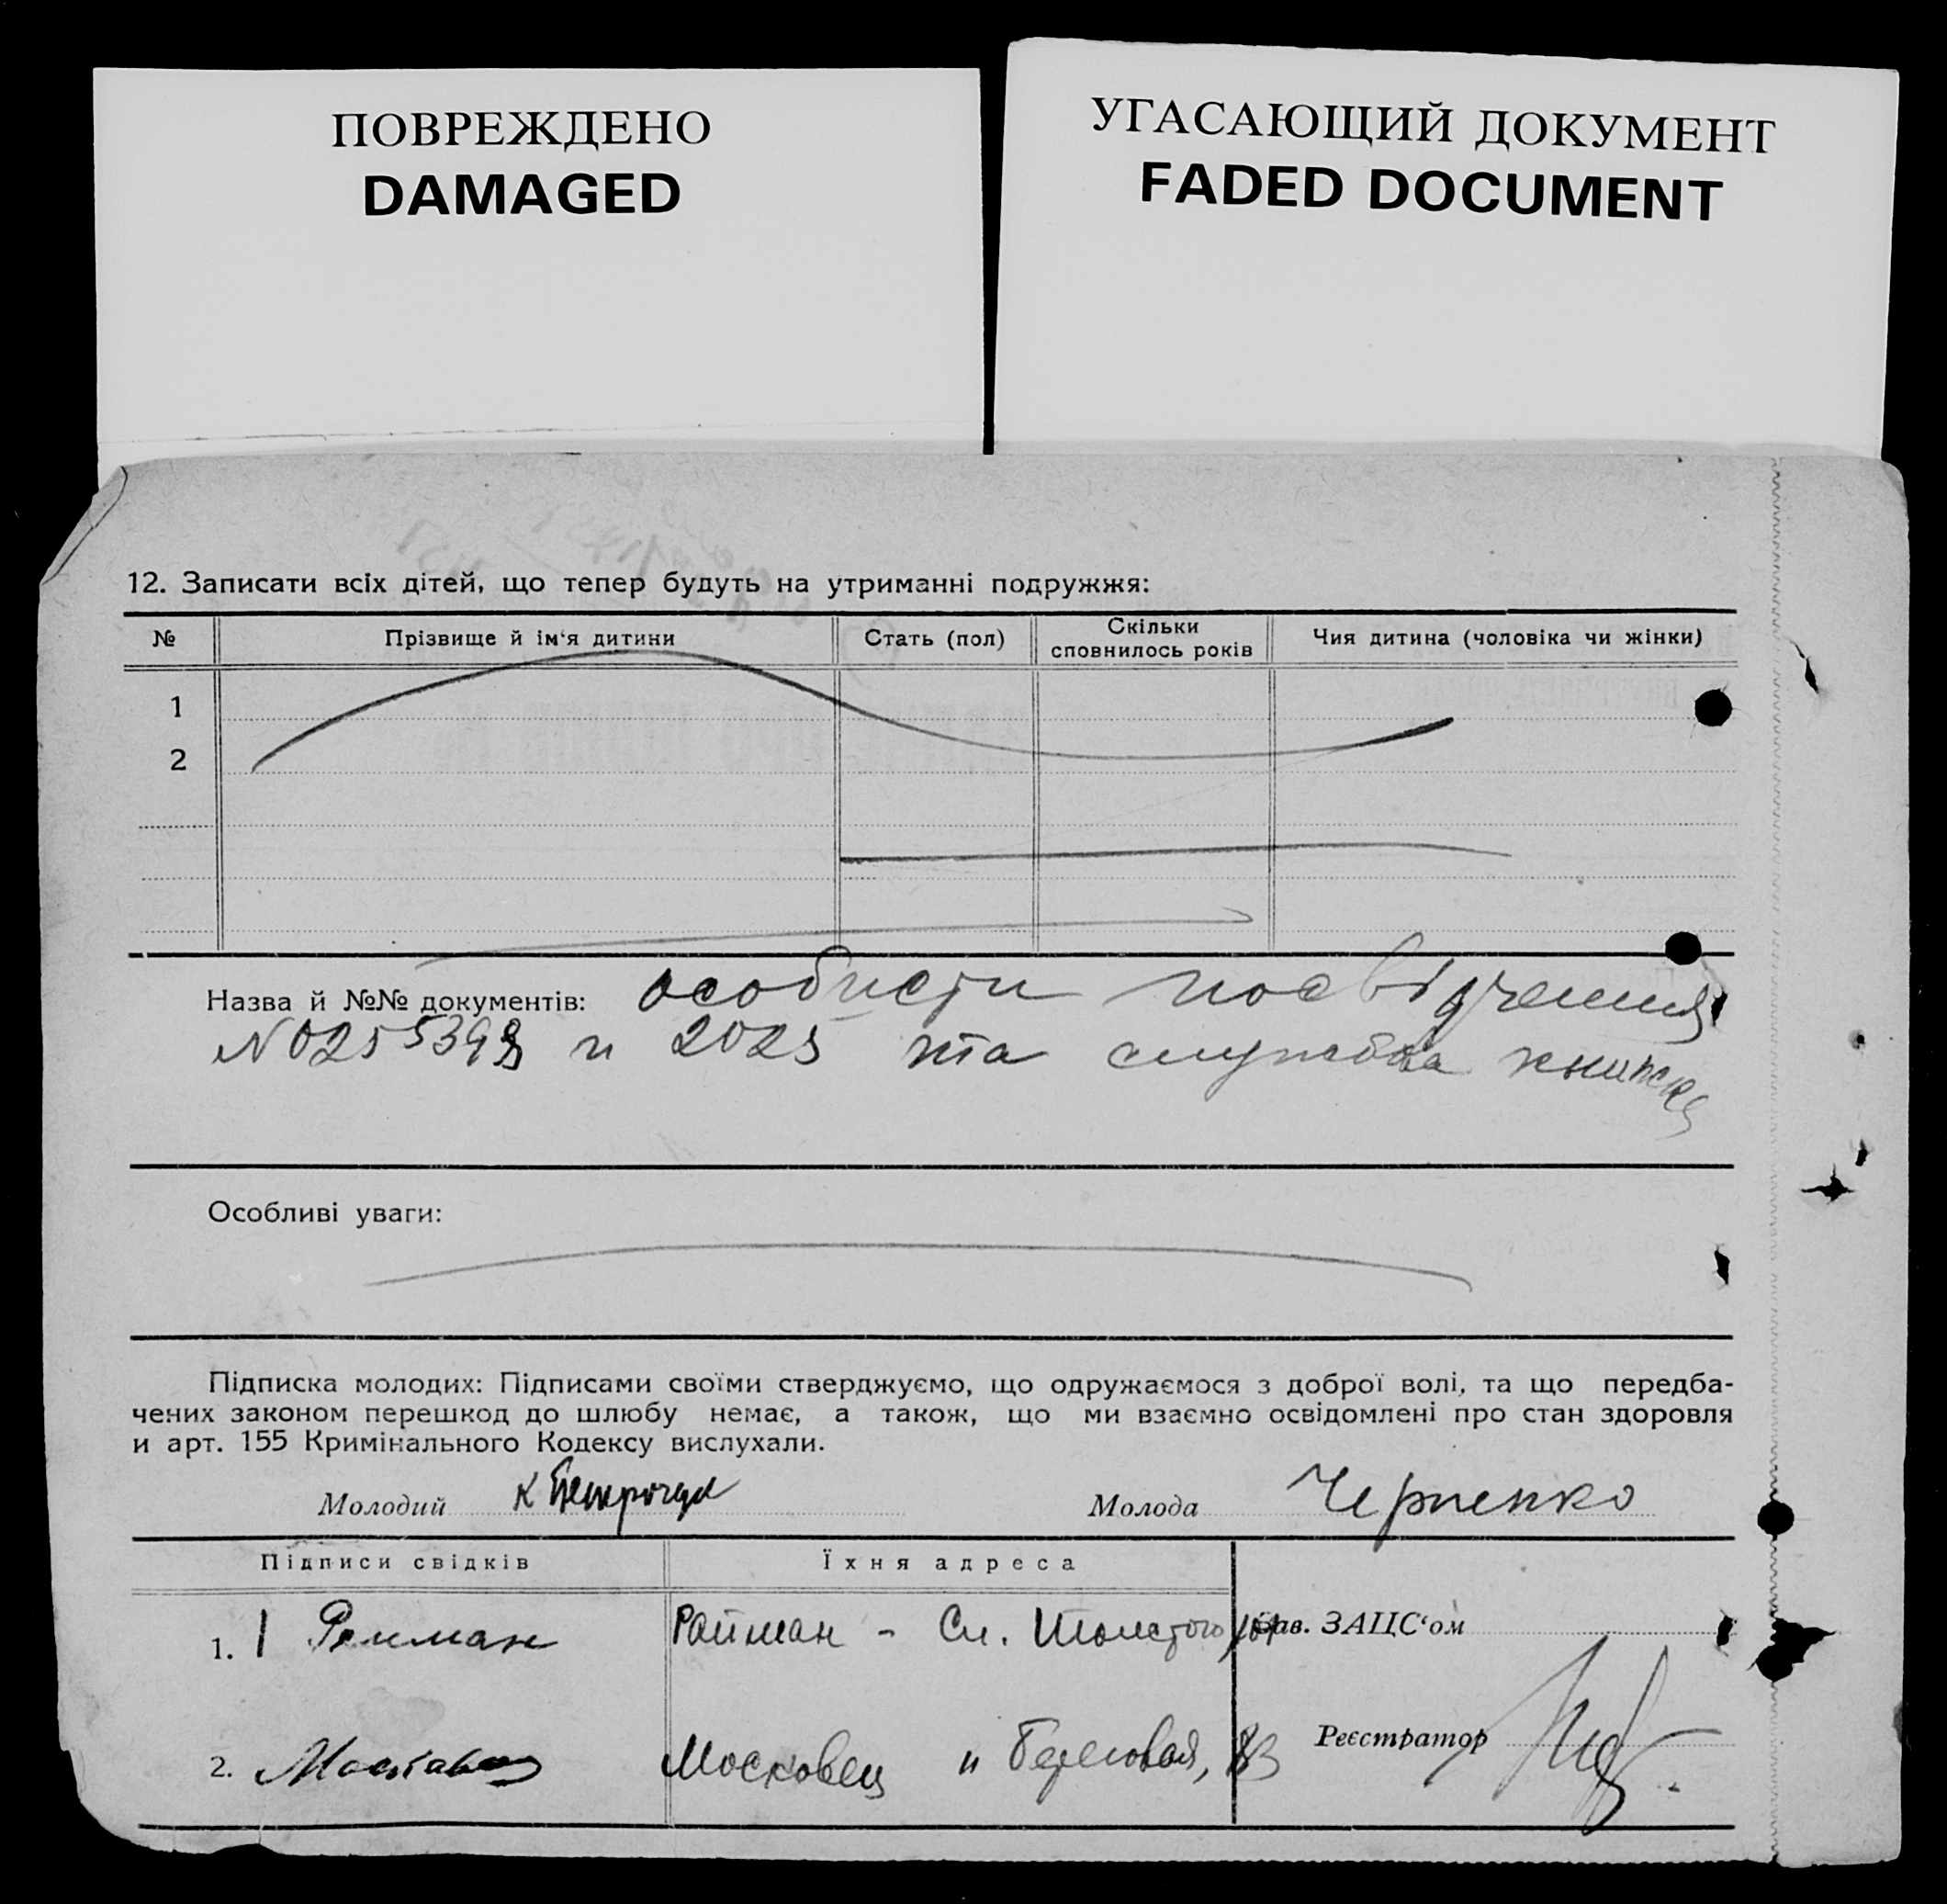 ПОВРЕЖДЕНО
DAMAGED
УГАСАЮЩИЙ ДОКУМЕНТ
FADED DOCUMENT
12. Записати всіх дітей, що тепер будуть на утриманні подружжя:
№ Прізвище й ім'я дитини Стать (пол) Скільки сповнилось років Чия дитина (чоловіка чи жінки)
1
2
Назва й №№ документів: особисти посвідчення
№ 025539 и 2025 та службова книжка
Особливі уваги:
Підписка молодих: Підписами своїми стверджуємо, що одружаємося з доброї волі, та що передба-
чених законом перешкод до шлюбу немає, а також, що ми взаємно освідомлені про стан здоровля
и арт. 155 Кримінального Кодексу вислухали.
Молодий Молода Черненко
Підписи свідків Їхня адреса
1. Райман - Сл. Толстого, Зав. ЗАЦС'ом
2. Московец и Береговая, 83 Реєстратор